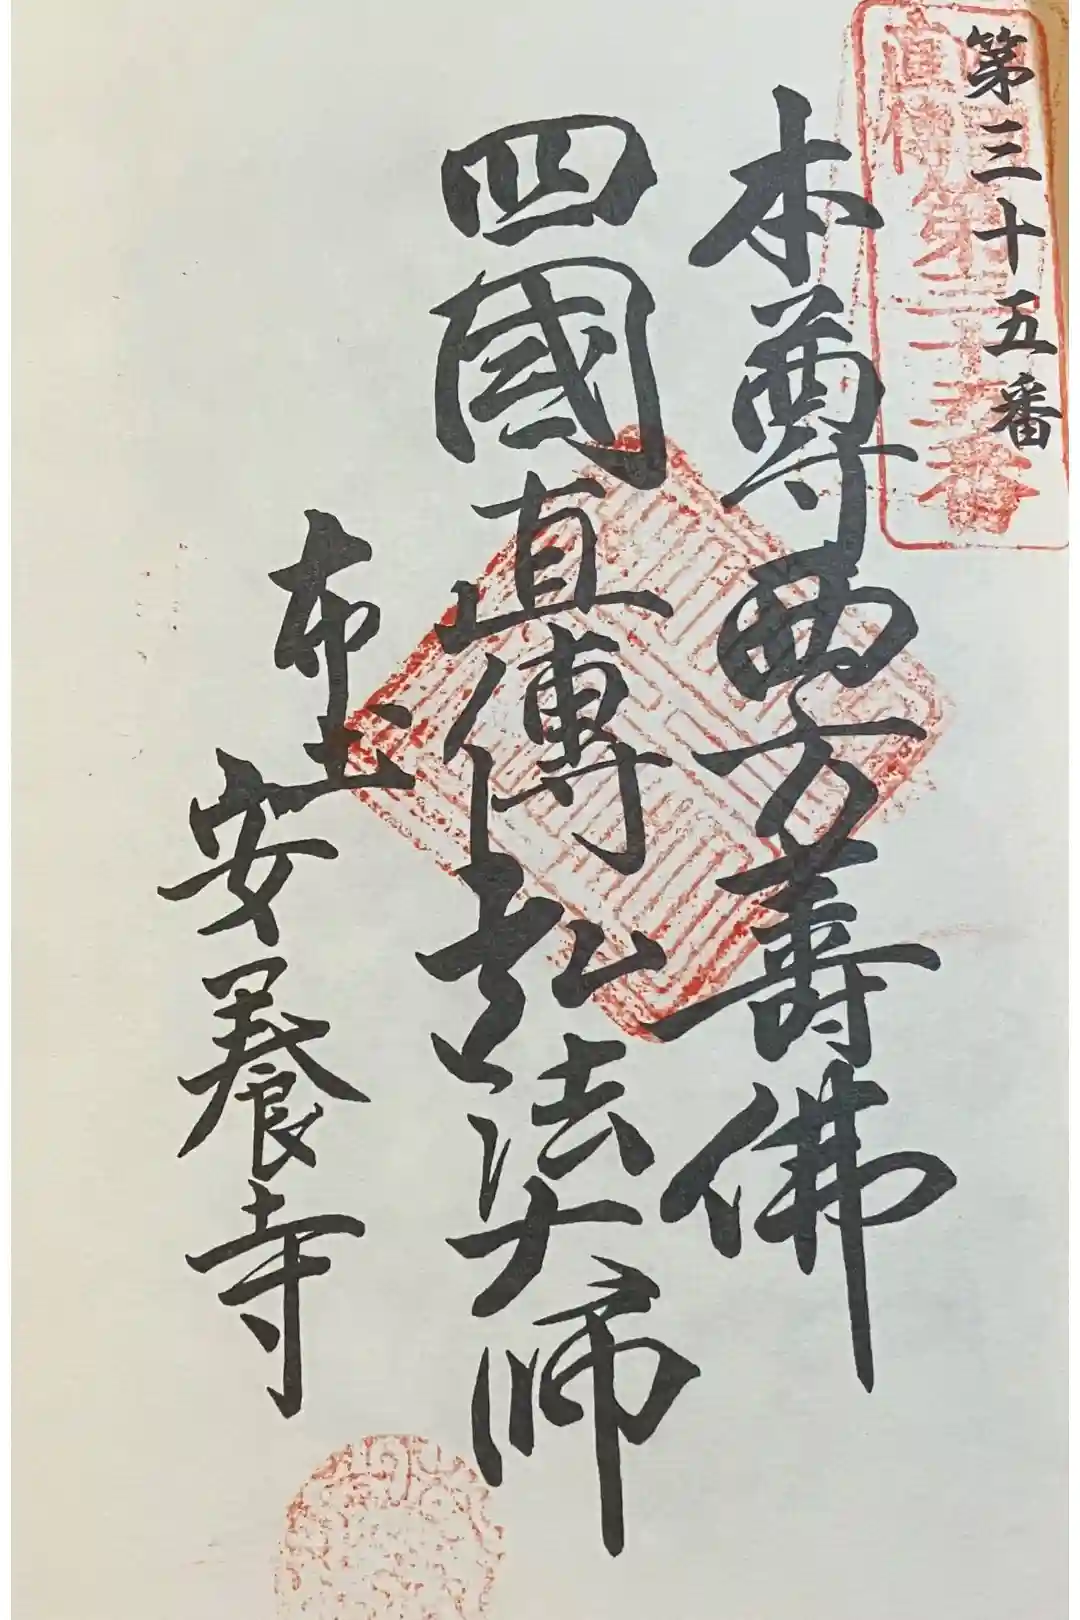 第三十五番
直傳
第三十五番
本尊西方壽佛
四國直傳弘法大師
布土
安養寺